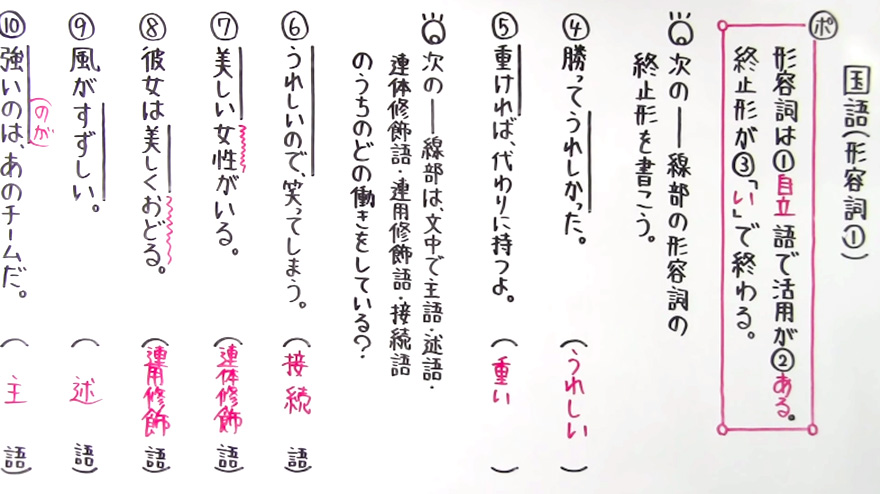 国語(形容詞①)
ポ
形容詞は①自立語で活用が②ある。
終止形が③「い」で終わる。
次の―線部の形容詞の
終止形を書こう。
④勝ってうれしかった。(うれしい)
⑤重ければ、代わりに持つよ。(重い)
次の―線部は、文中で主語・述語・
連体修飾語・連用修飾語・接続語
のうちのどの働きをしている?
⑥うれしいので、笑ってしまう。(接続語)
⑦美しい女性がいる。(連体修飾語)
⑧彼女は美しくおどる。(連用修飾語)
⑨風がすずしい。(述語)
⑩強いのは、あのチームだ。(主語)
(のが)